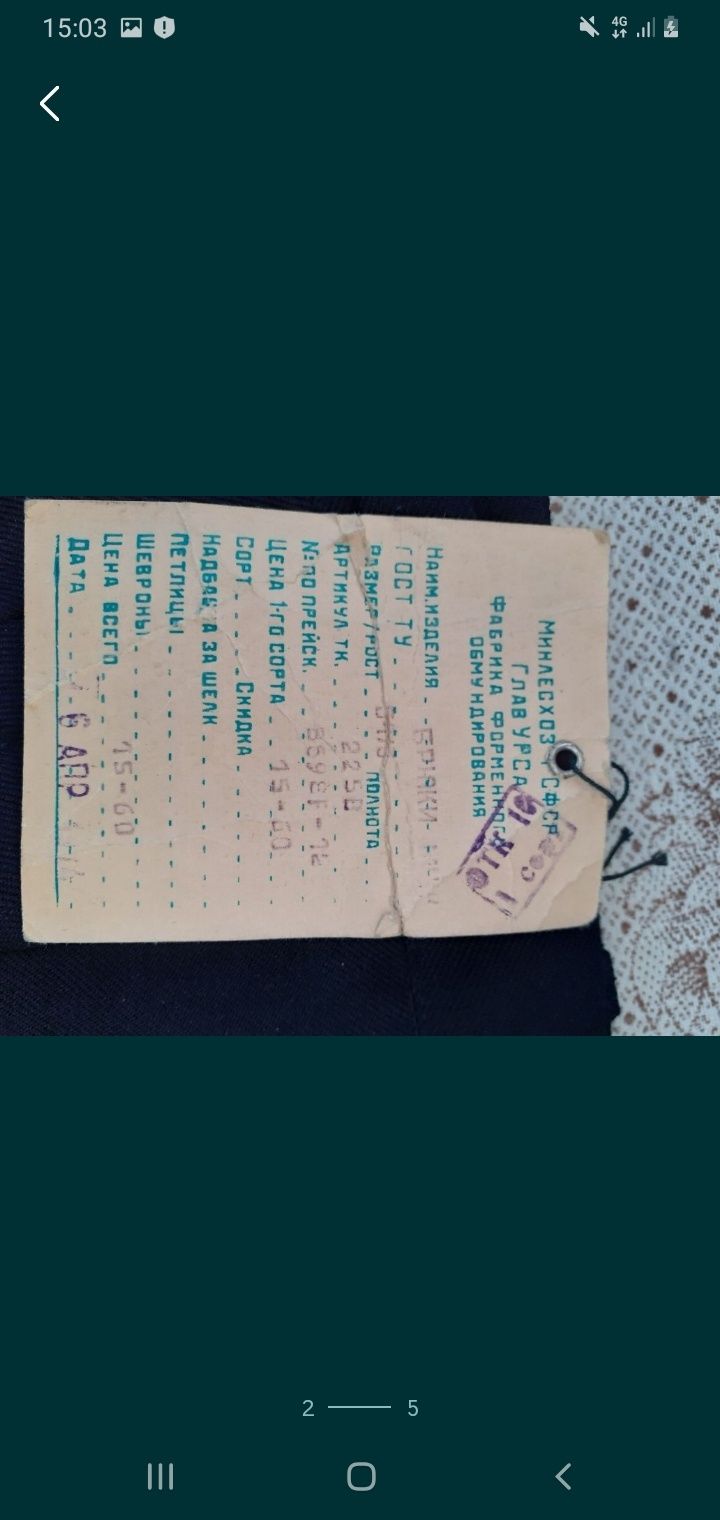 15:03
4G
Минлесхоз РСФСР
Главурса
Фабрика форменного
обмундирования
ОТК 16
1 сорт
Наим.изделия - - БРЮКИ
ГОСТ ТУ
Размер/рост полнота
Артикул тк. 225В
№ по прейск.
Цена 1-го сорта - - 15-60
Сорт - - - - Скидка
Надбавка за шелк
Петлицы
Шевроны
Цена всего 15-60
Дата 6 АПР
2 5